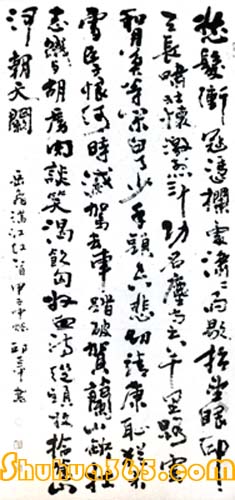 怒髮衝冠憑欄處瀟瀟雨歇抬望眼仰
天長嘯壯懷激烈三十功名塵與土八千里路雲
和月莫等閑白了少年頭空悲切靖康恥猶未
雪臣子恨何時滅駕長車踏破賀蘭山缺壯
志飢餐胡虜肉談笑渴飲匈奴血待從頭收拾舊山
河朝天闕
岳飛滿江紅詞甲子仲秋
Shuhua365.com